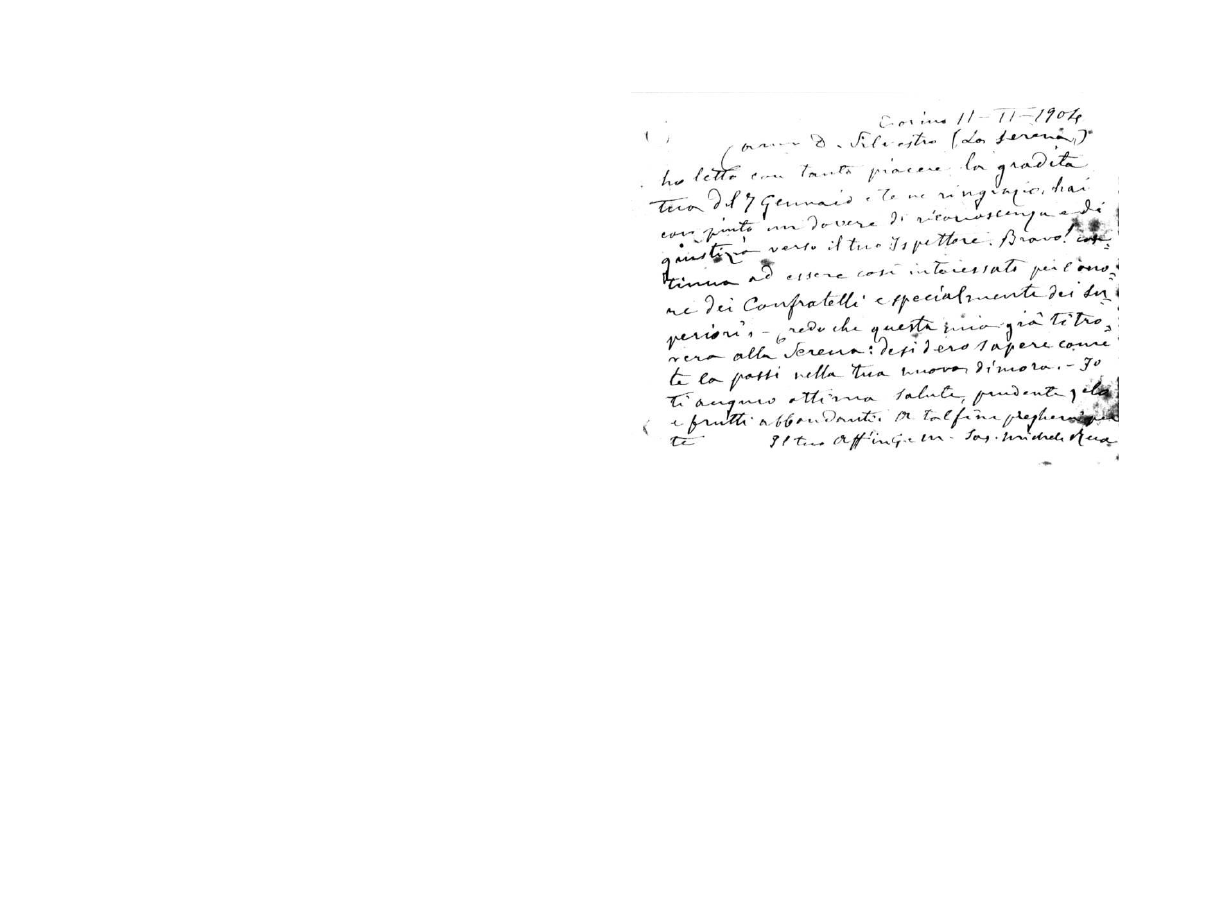 Torino 11-II-1904
Carmo D. Silvestro (La Serena)
ho letto con tanto piacere la gradita
tua del 7 Gennaio e te ne ringrazio, hai
compiuto un dovere di riconoscenza e di
giustizia verso il tuo Ispettore. Bravo! con=
tinua ad essere così interessato per l'ono=
re dei Confratelli e specialmente dei Su=
periori. - Credo che questa mia già ti tro=
verà alla Serena: desidero sapere come
te la passi nella tua nuova dimora. - Io
ti auguro ottima salute, prudente zelo
e frutti abbondanti. A tal fine pregherò per
te Il tuo Aff. in G. e M. Sac. Michele Rua